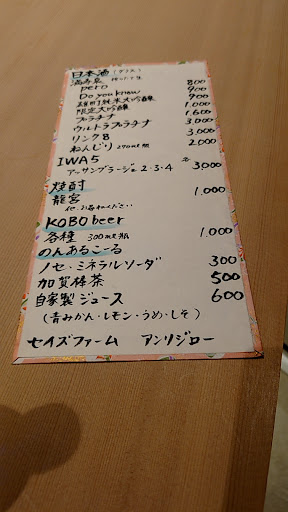 日本酒(グラス)
満寿泉 800
pero 900
Do you know 900
雄町純米大吟醸 1.000
限定大吟醸 1,600
プラチナ 3,000
ウルトラプラチナ 3,000
リンク8 2000
ねんじり 270ml瓶
IWA5
アッサンブラージュ 2・3・4 3,000
焼酎
龍宮 1.000
他、お尋ねください
KOBO beer
各種 300ml瓶 1.000
のんあるこーる
ノセ・ミネラルソーダ 300
加賀棒茶 500
自家製ジュース 600
(青みかん・レモン・うめ・しそ)
セイズファーム アンリジロー